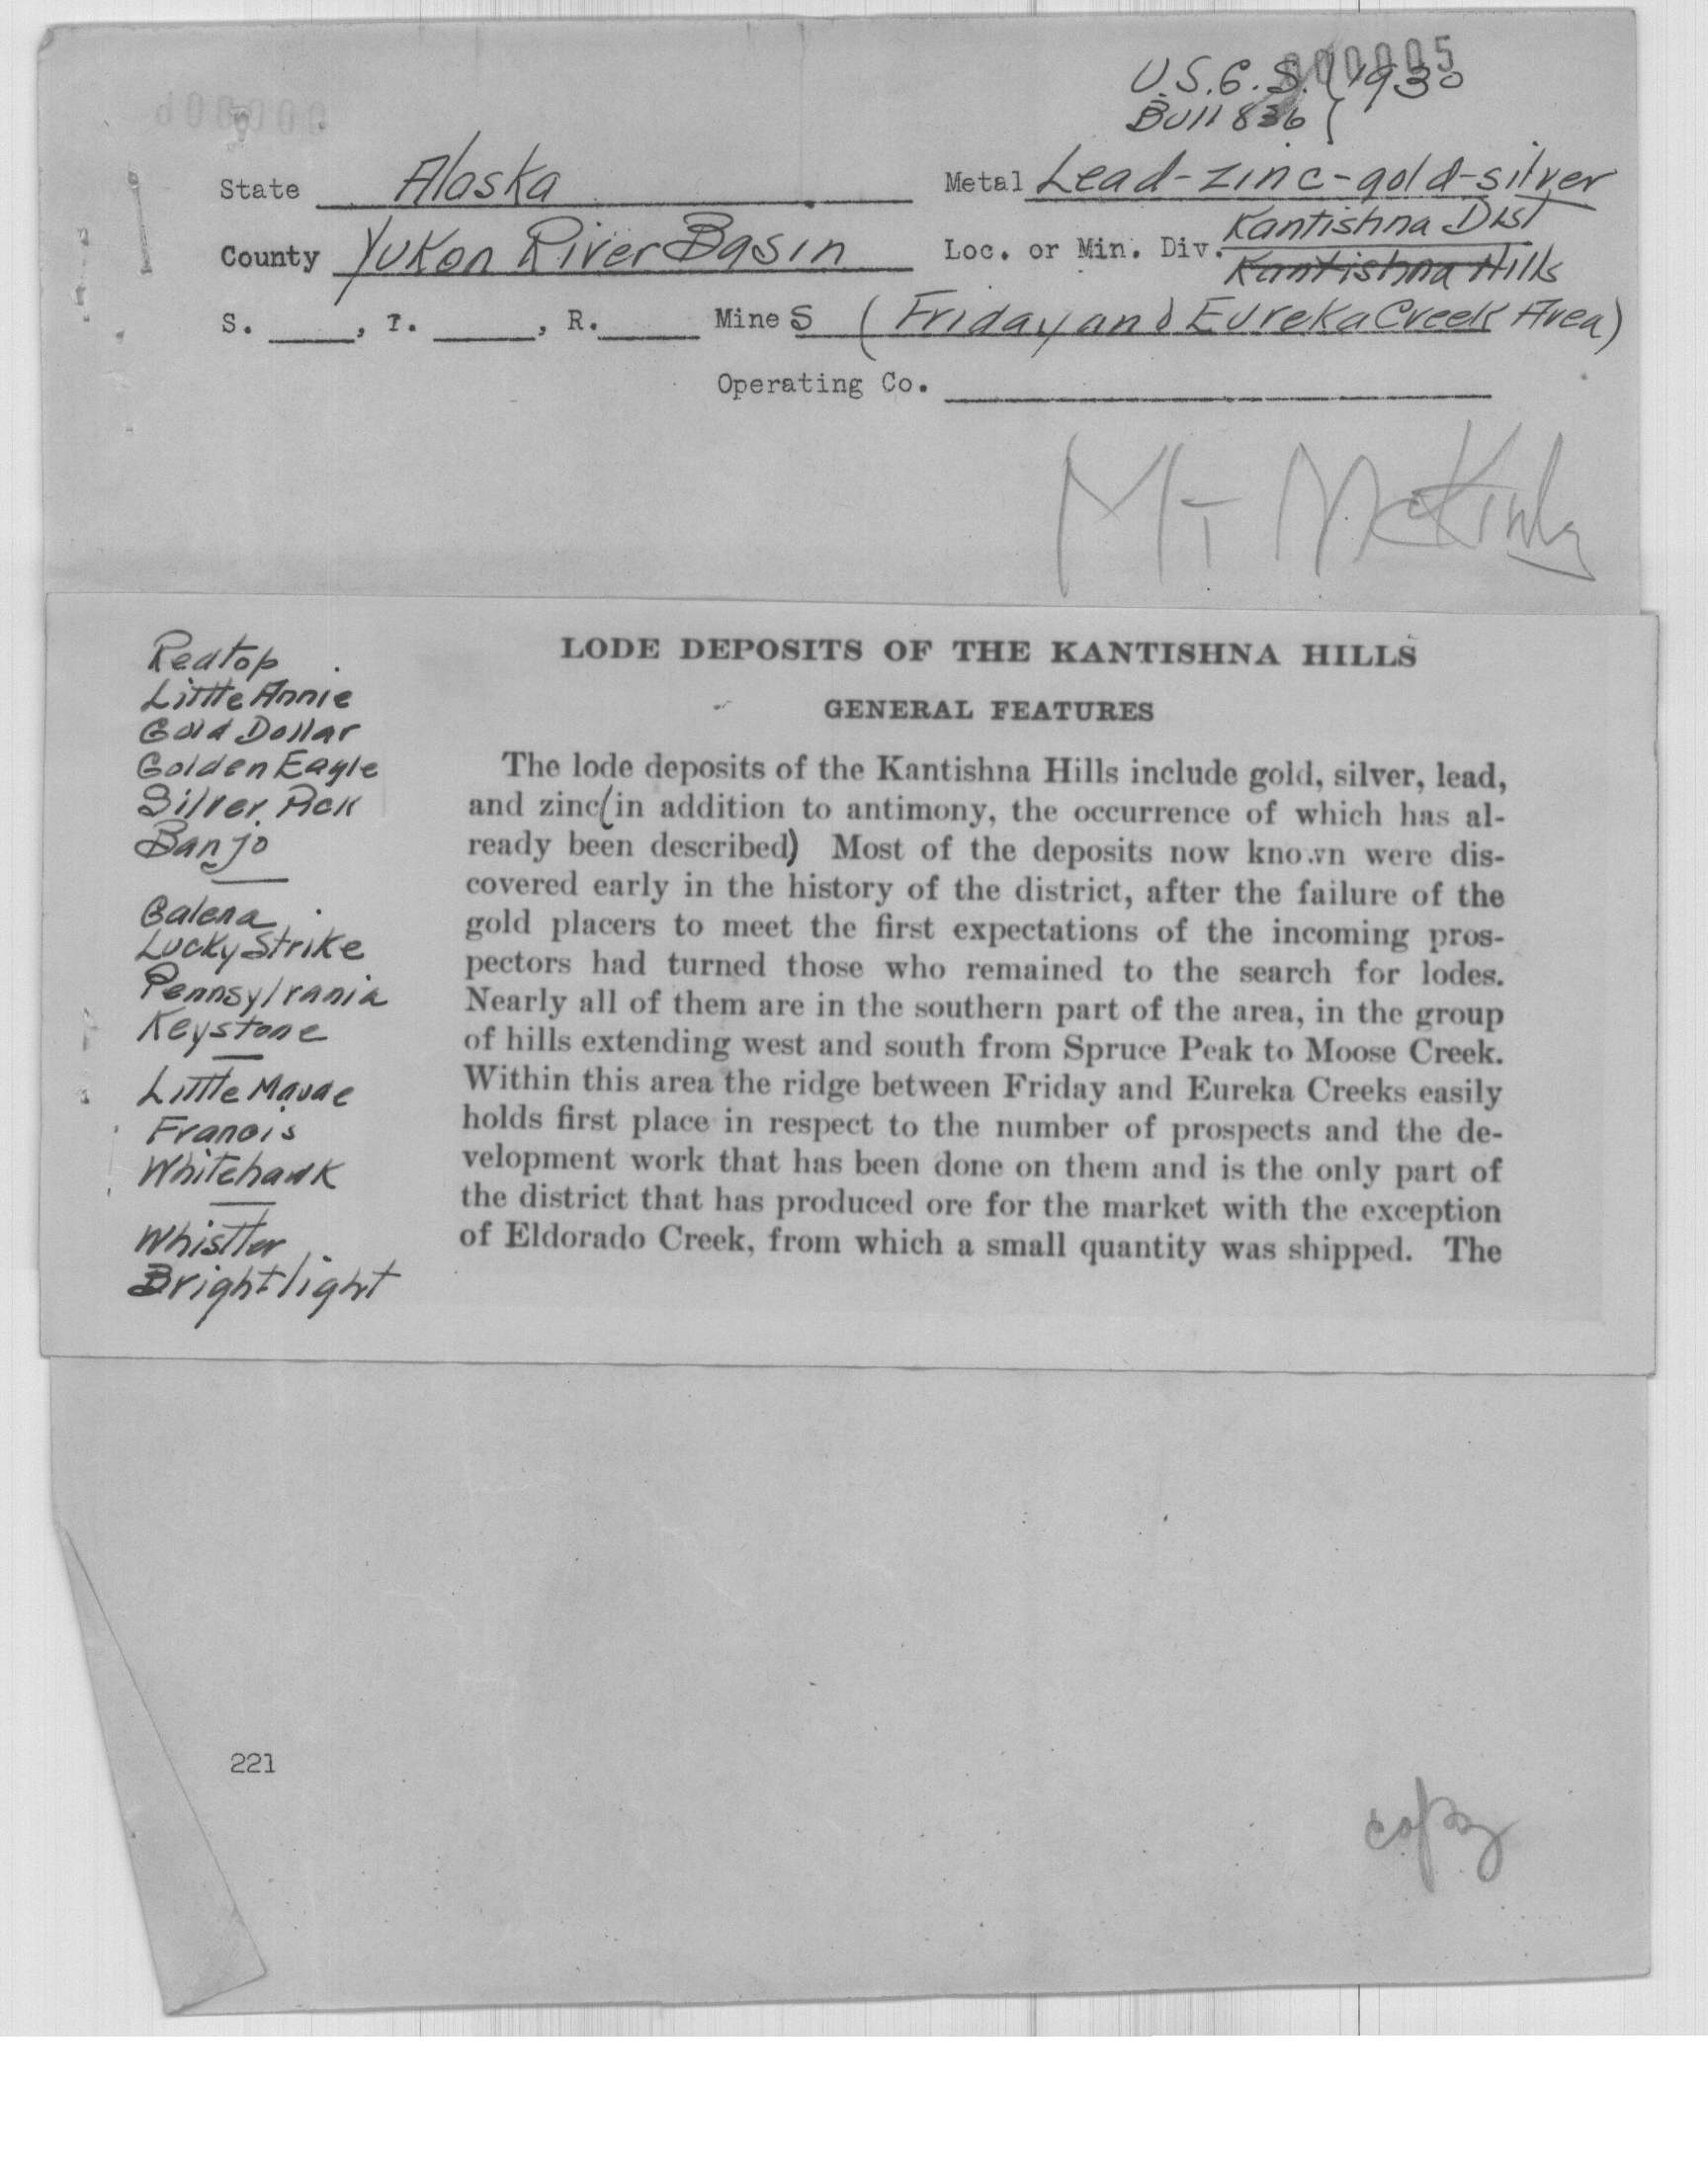 000005
U.S.G.S. { 1930
Bull 836 {
State Alaska
Metal Lead-zinc-gold-silver
County Yukon River Basin
Loc. or Min. Div. Kantishna Dist
Kantishna Hills
S. ____, T. ____, R. ____ Mines (Friday and Eureka Creek Area)
Operating Co.
Mt McKinly
Redtop
Little Annie
Gold Dollar
Golden Eagle
Silver Pick
Banjo
Galena
Lucky Strike
Pennsylvania
Keystone
Little Maude
Francis
Whitehawk
Whistler
Brightlight
LODE DEPOSITS OF THE KANTISHNA HILLS
GENERAL FEATURES
The lode deposits of the Kantishna Hills include gold, silver, lead,
and zinc (in addition to antimony, the occurrence of which has al-
ready been described) Most of the deposits now known were dis-
covered early in the history of the district, after the failure of the
gold placers to meet the first expectations of the incoming pros-
pectors had turned those who remained to the search for lodes.
Nearly all of them are in the southern part of the area, in the group
of hills extending west and south from Spruce Peak to Moose Creek.
Within this area the ridge between Friday and Eureka Creeks easily
holds first place in respect to the number of prospects and the de-
velopment work that has been done on them and is the only part of
the district that has produced ore for the market with the exception
of Eldorado Creek, from which a small quantity was shipped. The
221
copy